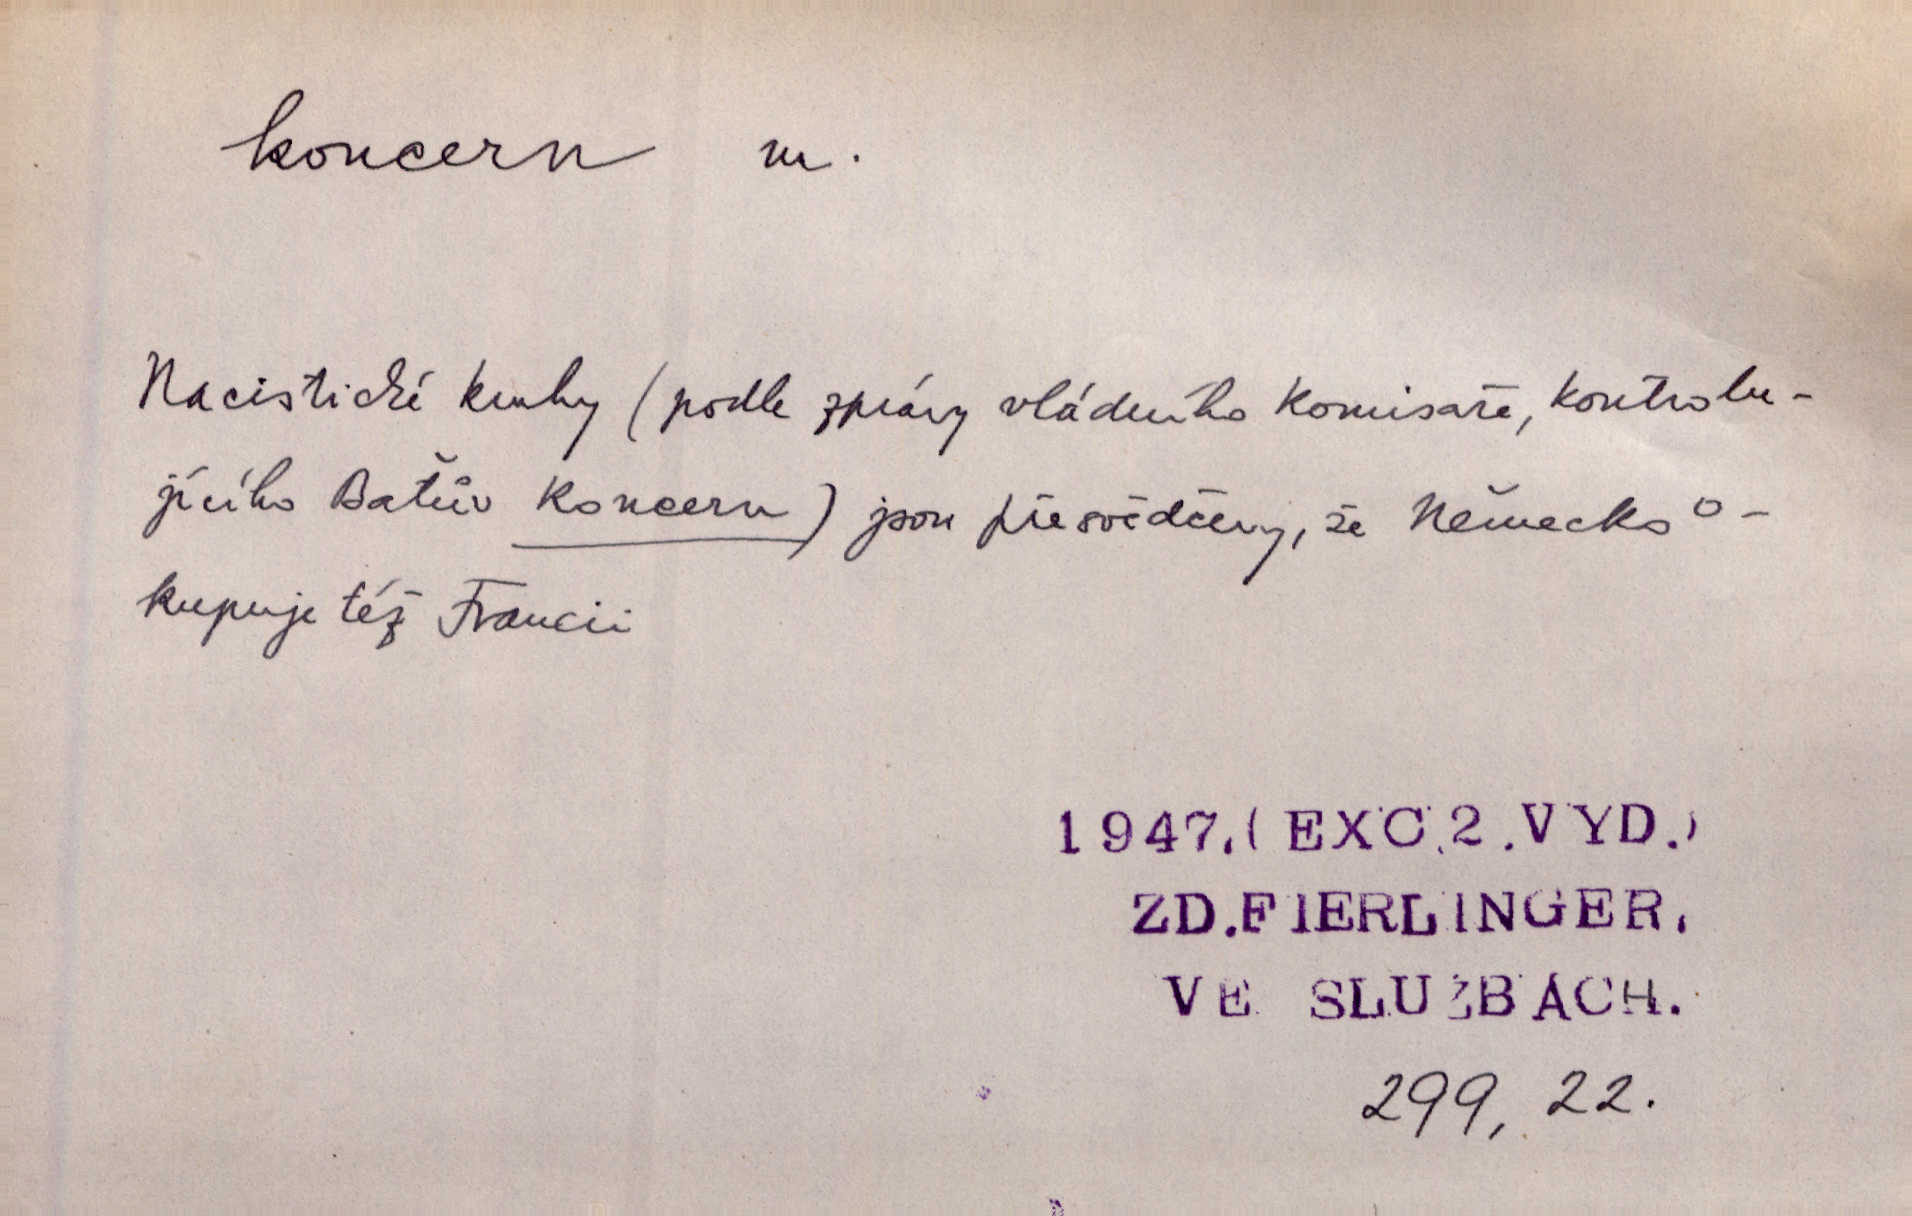 koncern m.
Nacistické kruhy (podle zprávy vládního komisaře, kontrolu-
jícího Baťův koncern) jsou přesvědčeny, že Německo o-
kupuje též Francii
1947.(EXC.2.VYD.)
ZD.FIERLINGER.
VE SLUŽBÁCH.
299, 22.